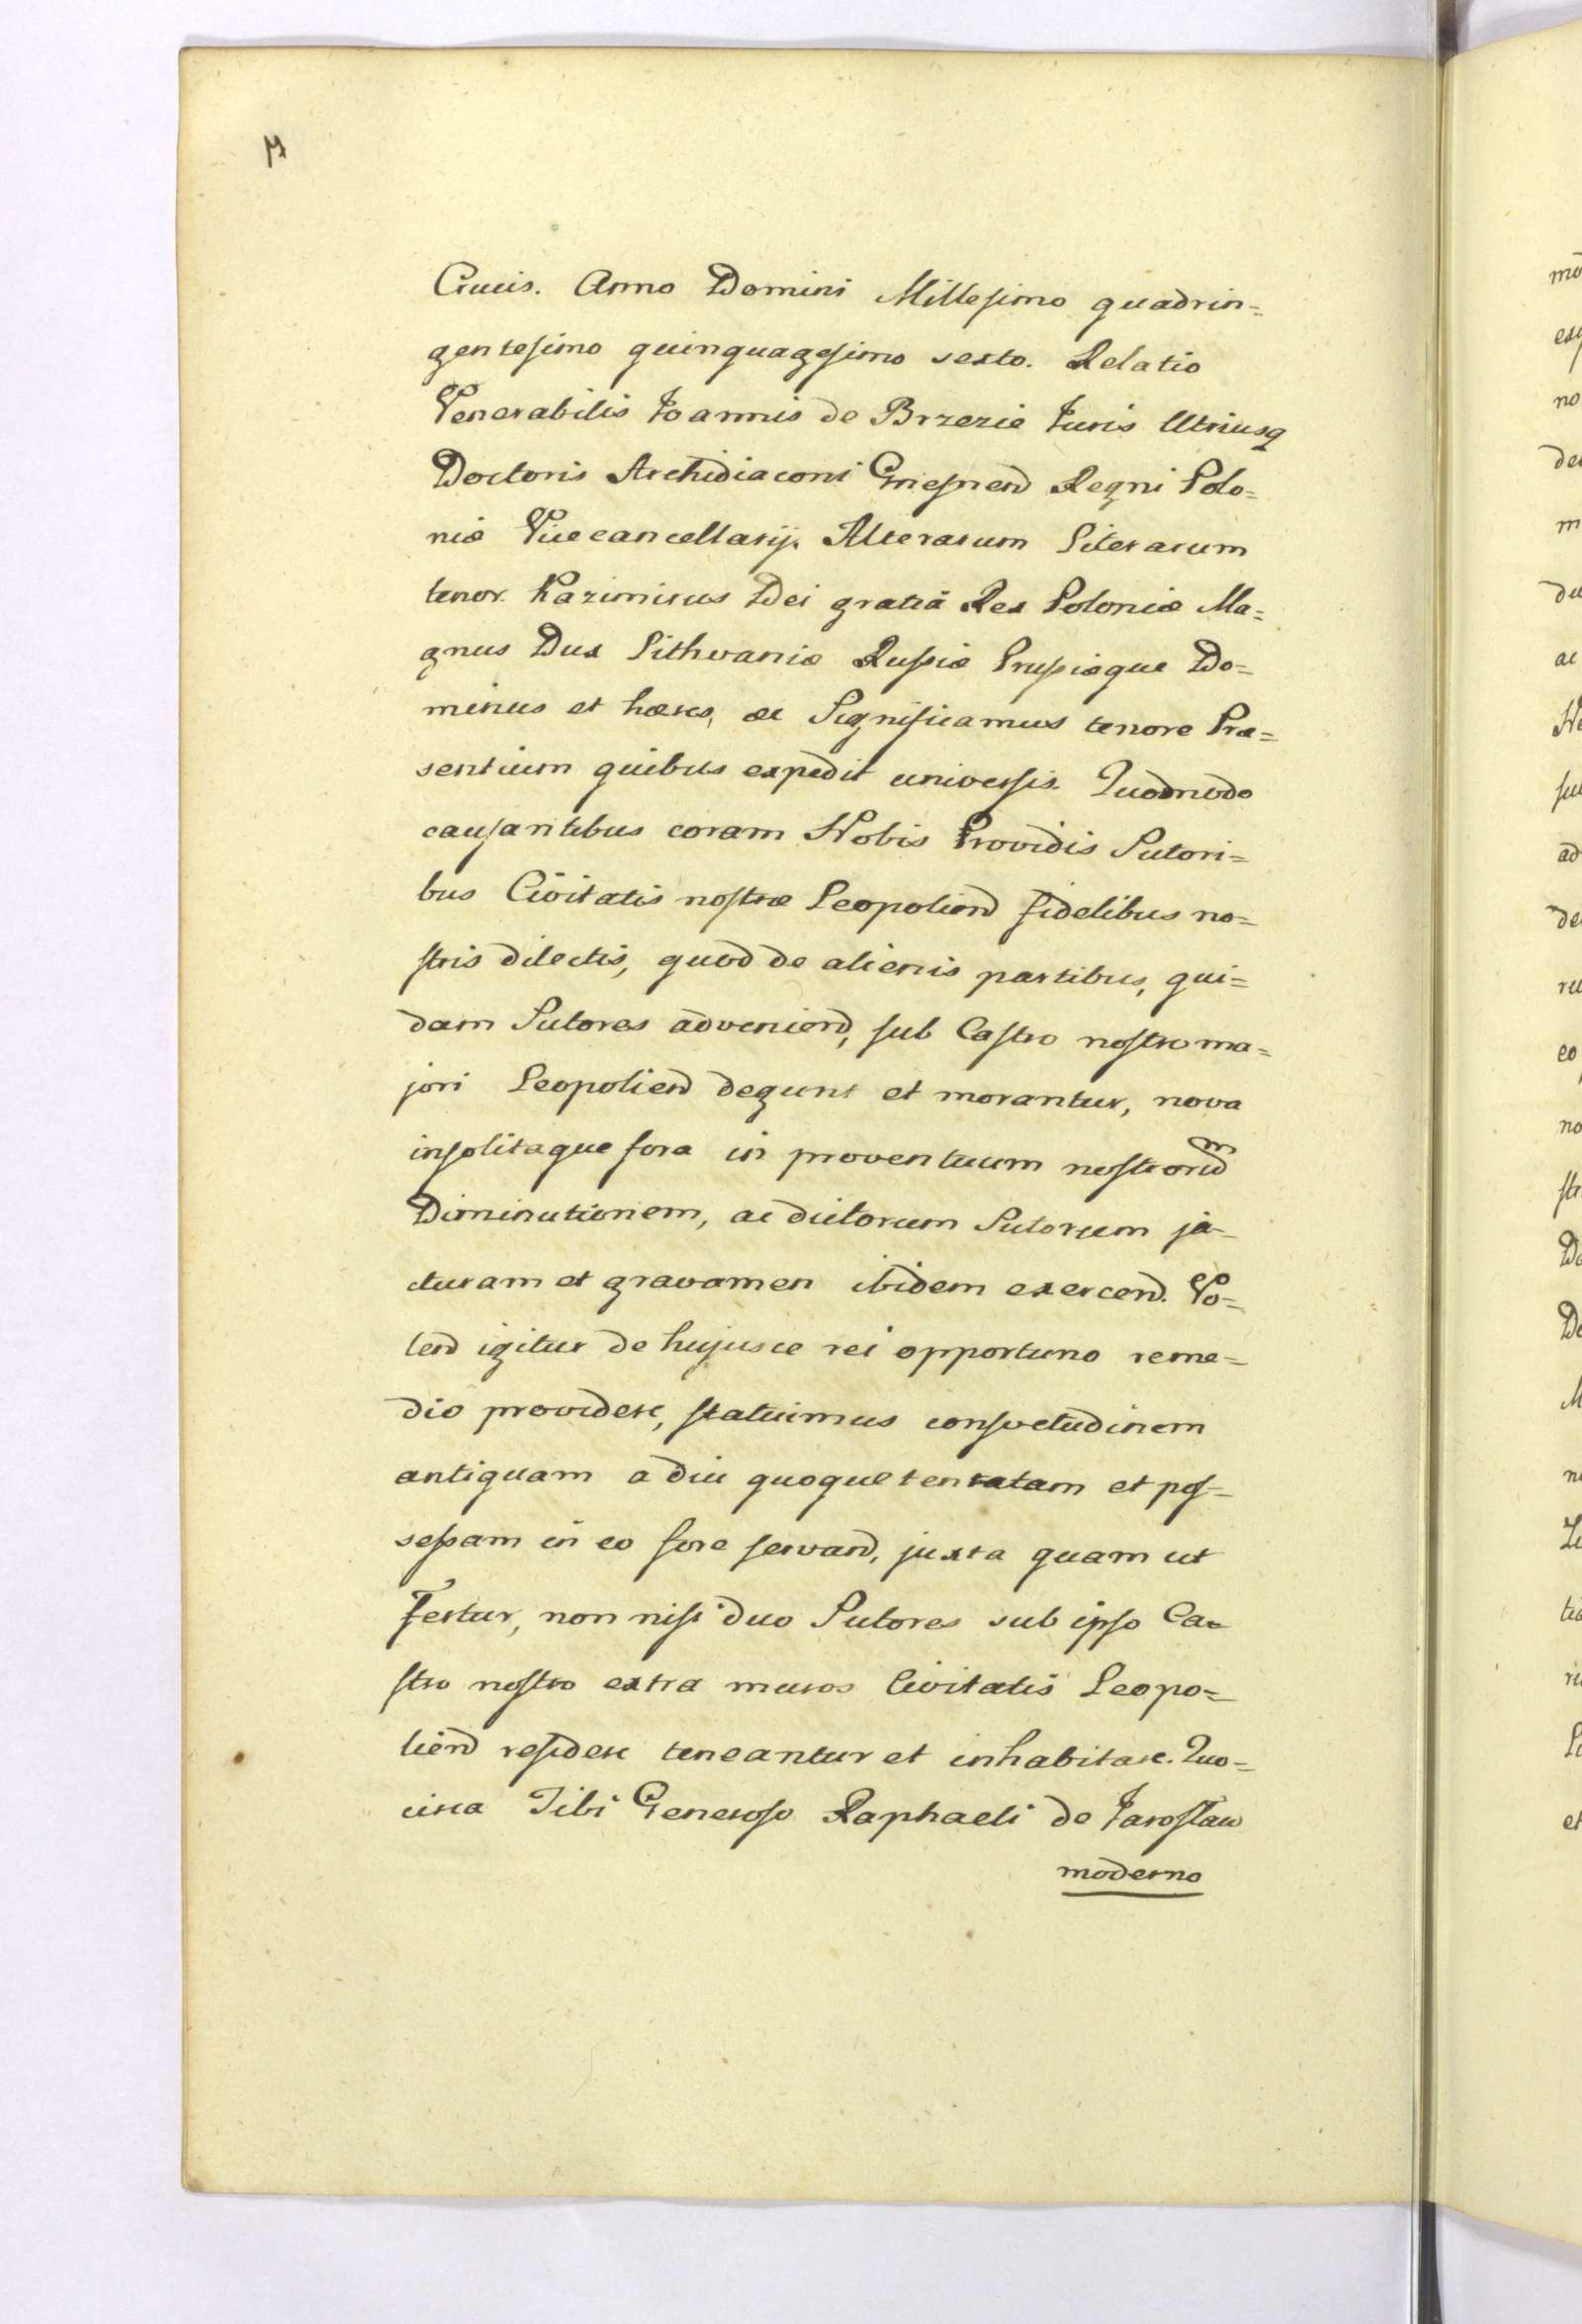 Crucis. Anno Domini Millesimo quadrin=
gentesimo quinquagesimo sexto. Relatio
Venerabilis Joannis de Brzezie Juris Utriusq
Doctoris Archidiaconi Gnesnen̄ Regni Polo=
niæ Vicecancellarij. Alterarum Literarum
tenor. Kazimirus Dei gratiâ Rex Poloniæ Ma=
gnus Dux Lithvaniæ Russiæ Prussiæque Do=
minus et hæres, &c Significamus tenore Præ=
sentium quibus expedit universis. Quomodo
causantibus coram Nobis Providis Sutori=
bus Civitatis nostræ Leopolien̄ fidelibus no=
stris dilectis, quod de alienis partibus, qui=
dam Sutores advenien̄, sub Castro nostro ma=
jori Leopolien̄ degunt et morantur, nova
insolitaque fora in proventuum nostroru̅m
Diminutionem, ac dictorum Sutorum ja-
cturam et gravamen ibidem exercen̄. Vo=
len̄ igitur de hujusce rei opportuno reme=
dio providere, statuimus consvetudinem
antiquam a diu quoque tentatam et pos-
sessam in eo fore servan̄, juxta quam ut
fertur, non nisi duo Sutores sub ipso Ca-
stro nostro extra muros Civitatis Leopo=
lien̄ residere teneantur et inhabitare. Quo=
circa Tibi Generoso Raphaeli de Jaroslaw
moderno
mo
no
de
m
du
ac
ad
de
ru
eo
no
Do
De
M
et